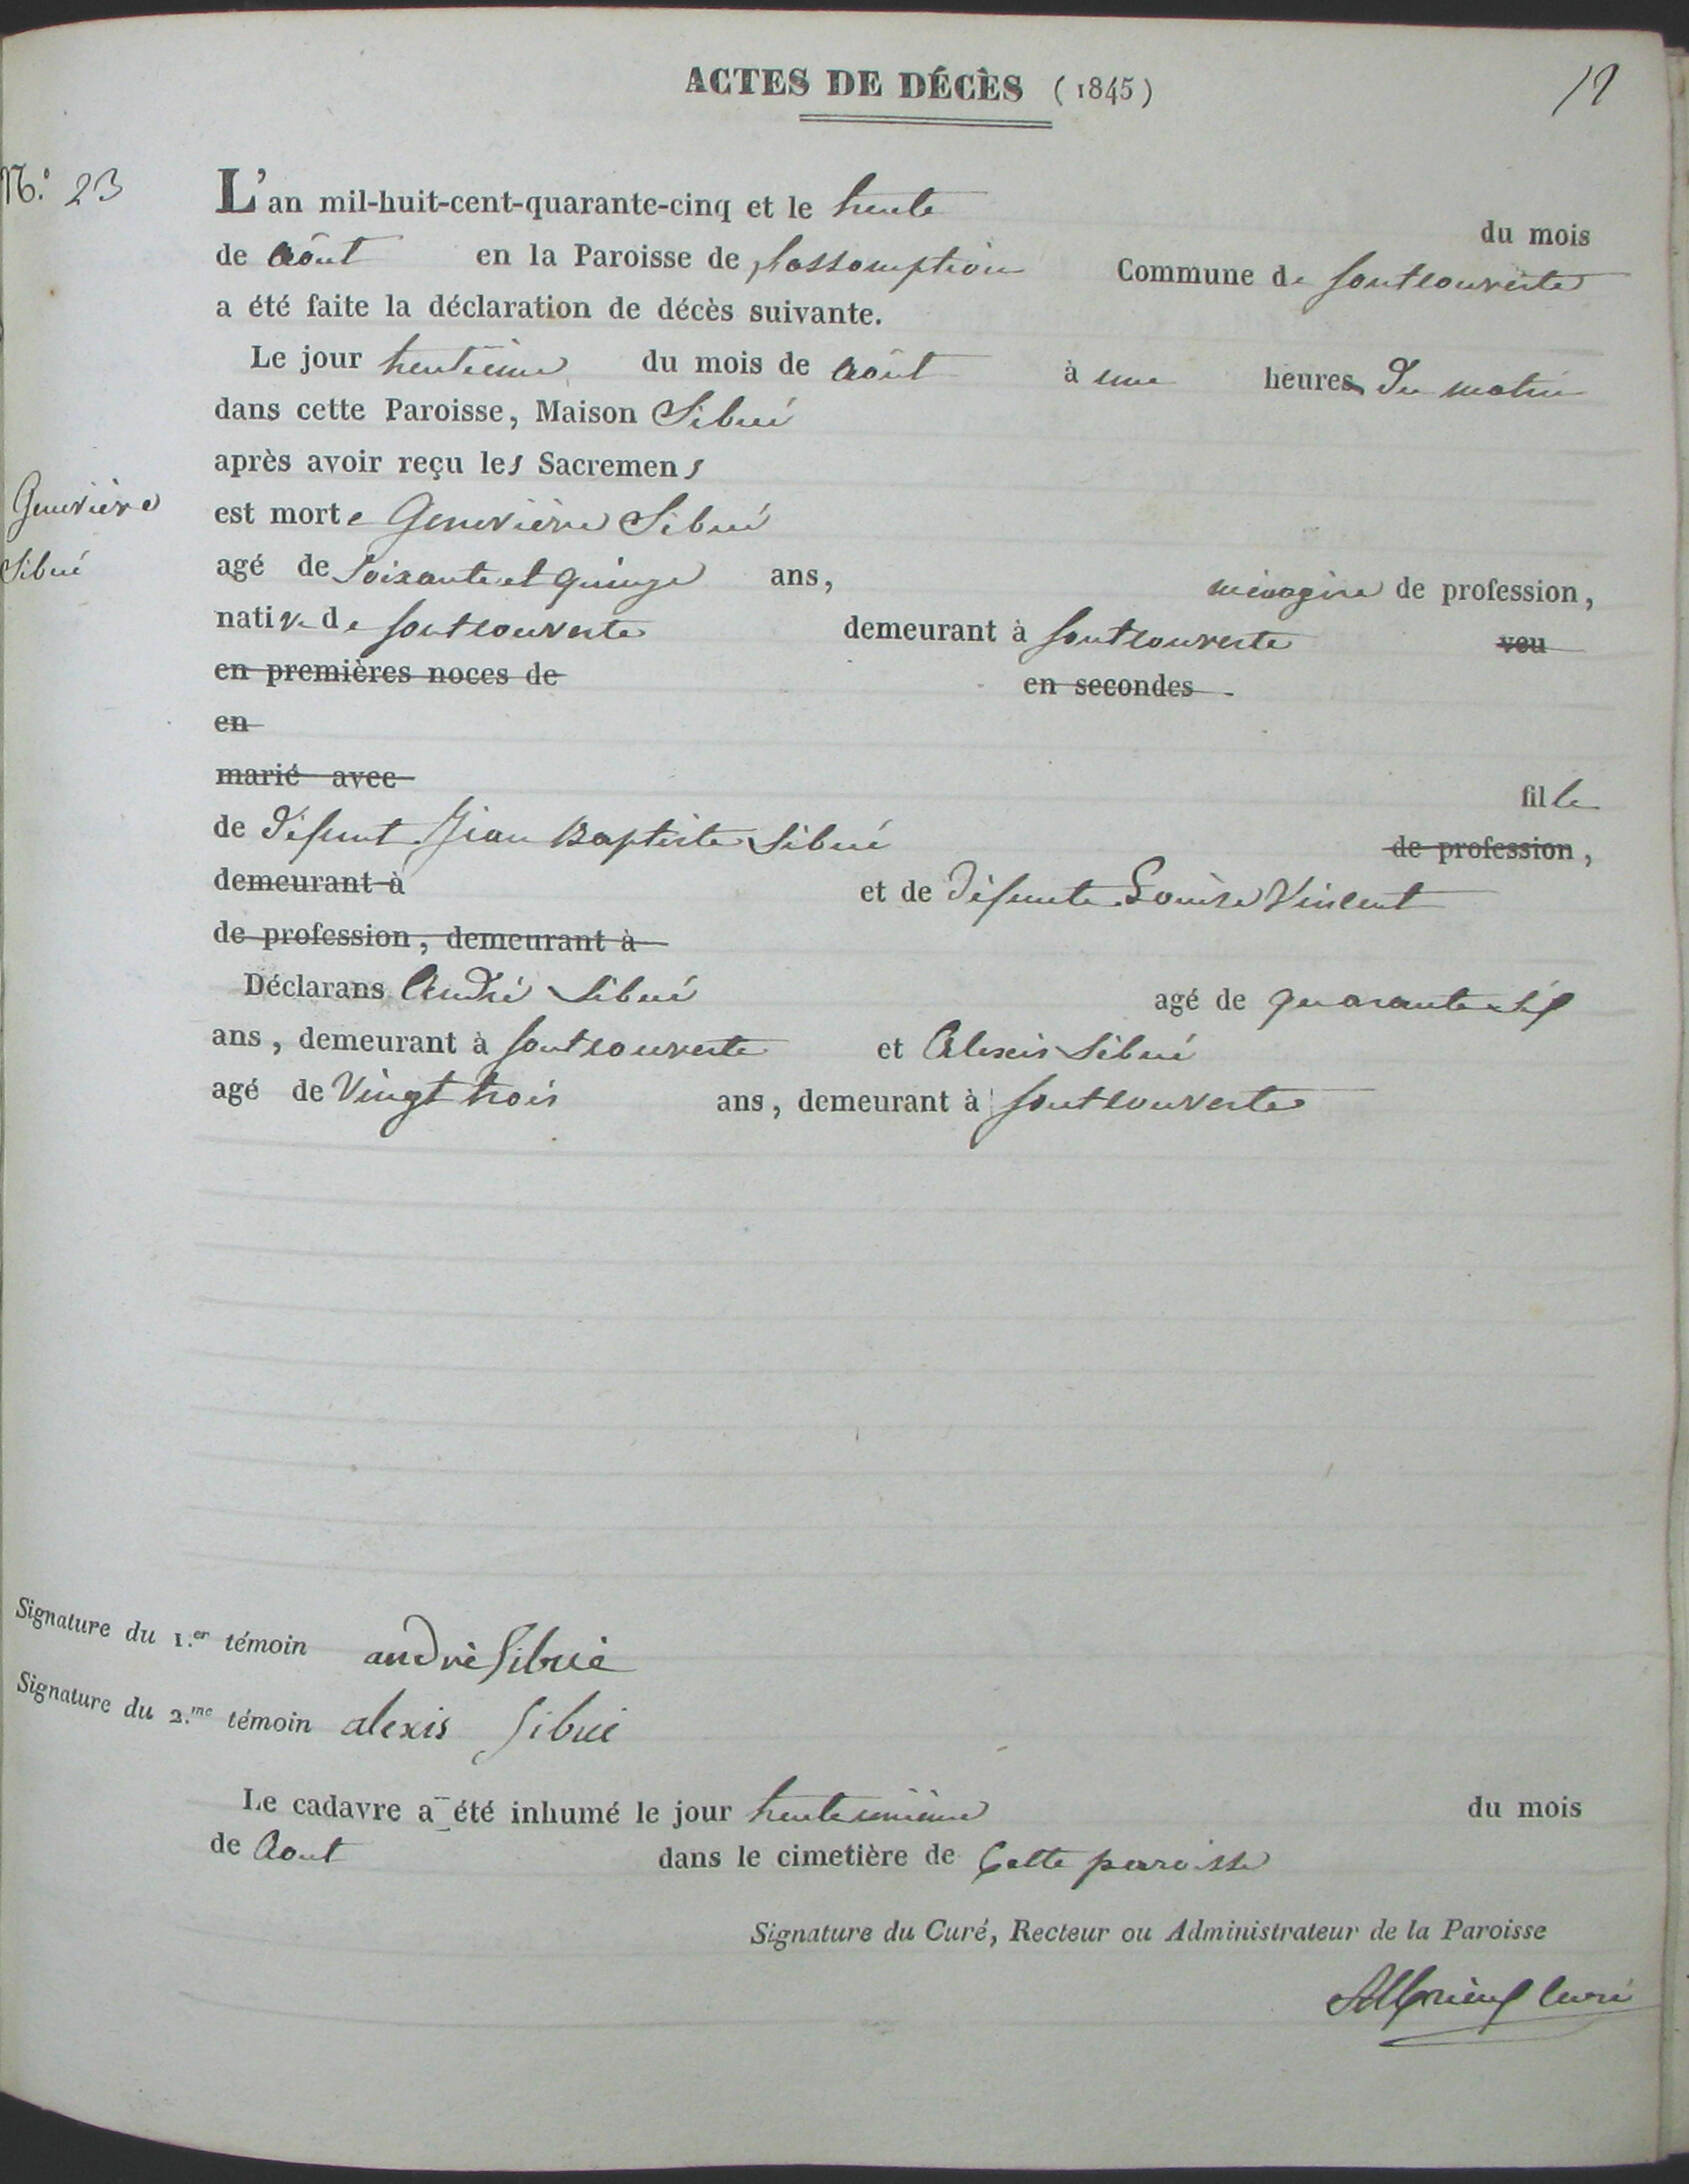 ACTES DE DÉCÈS (1845)
12
N.° 23
L'an mil-huit-cent-quarante-cinq et le trente du mois
de Aôut en la Paroisse de l'assomption Commune de fontcouverte
a été faite la déclaration de décès suivante.
Le jour trentième du mois de Aôut à une heures du matin
dans cette Paroisse, Maison Sibué
après avoir reçu les Sacremens
Genevière Sibué
est morte Genevière Sibué
agé de Soixante et quinze ans, ménagère de profession,
native de fontcouverte demeurant à fontcouverte veu
en premières noces de en secondes
en
marié avec fille
de défunt Jean Baptiste Sibué de profession,
demeurant à et de défunte Louise Vincent
de profession, demeurant à
Déclarans André Sibué agé de quarante six
ans, demeurant à fontcouverte et Alexis Sibué
agé de Vingt trois ans, demeurant à fontcouverte
Signature du 1.er témoin andrè Sibuè
Signature du 2.me témoin alexis Sibué
Le cadavre a été inhumé le jour trente unième du mois
de Aout dans le cimetière de Cette paroisse
Signature du Curé, Recteur ou Administrateur de la Paroisse
curé